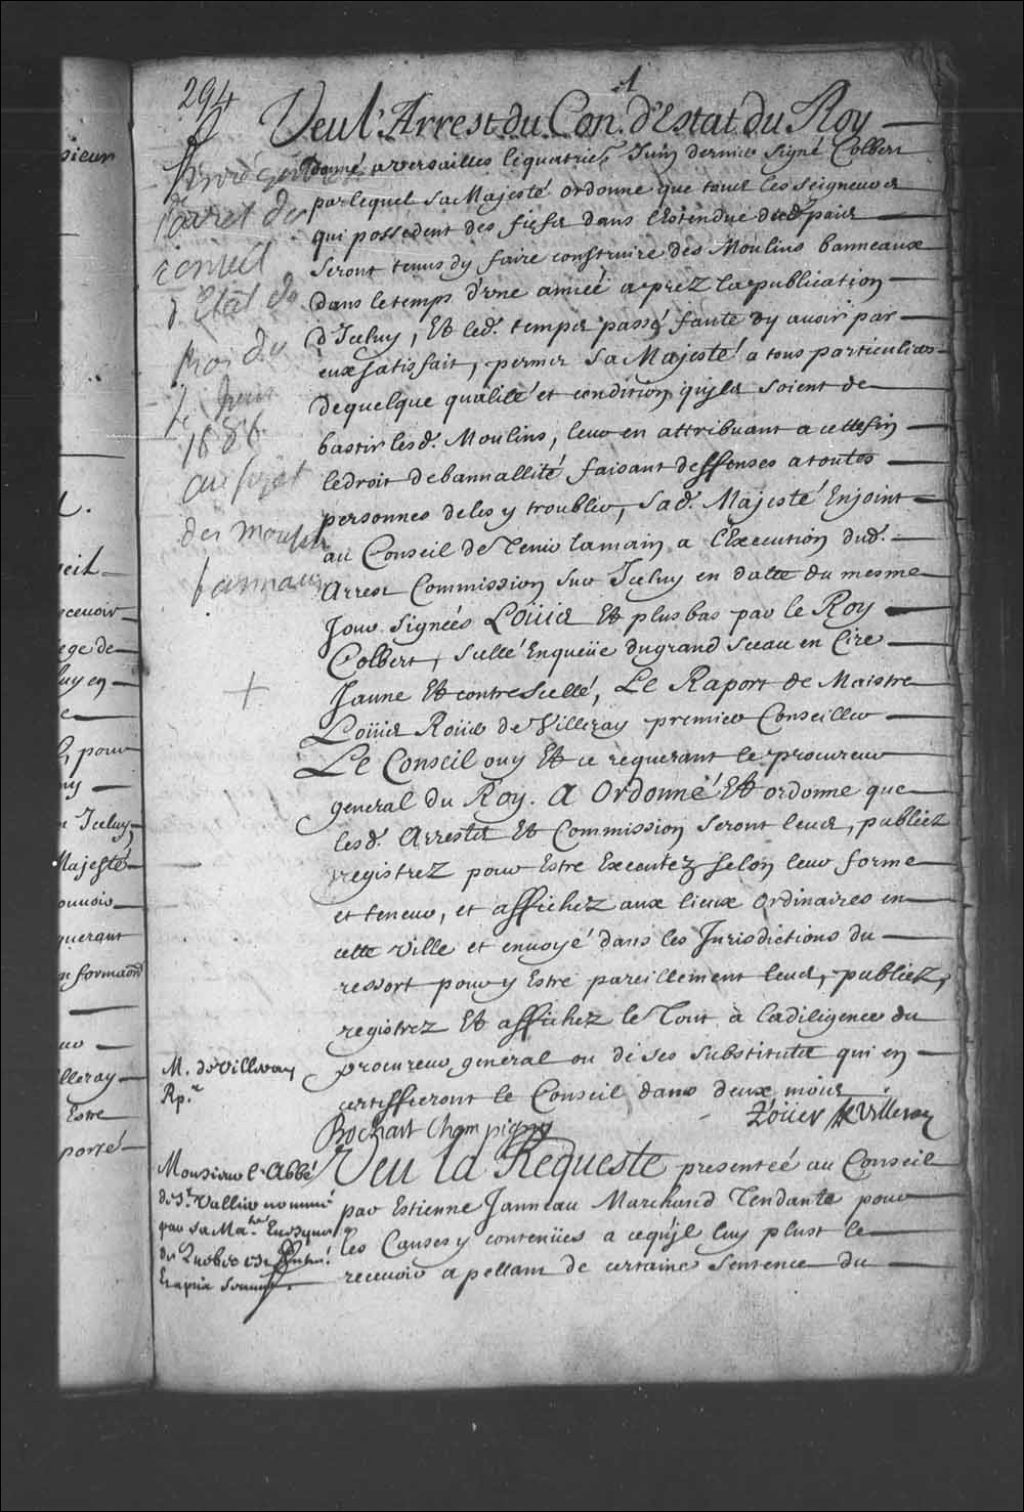 294
1
Veu l'Arrest du Con. d'Estat du Roy
donné a versailles le quatrie. Juin dernier signé Colbert
par lequel sa Majesté ordonne que tous les seigneurs
qui possedent des fiefs dans l'Estendue dud. pais
seront tenus dy faire construire des Moulins banneaux
dans le temps d'vne année aprez la publication
d'Iceluy, Et led. temps passé faute dy auoir par
eux satisfait, permet sa Majesté a tous particuliers
de quelque qualité et condition qu'ils soient de
bastir lesd. Moulins, leur en attribuant a cette fin
le droit de bannallité faisant deffenses a toutes
personnes de les y troubler, sad. Majesté Enjoint
au Conseil de Tenir la main a l'Execution dud.
Arrest Commission sur Iceluy en datte du mesme
Jour signées Loüis Et plus bas par le Roy
Colbert, scellé Enqueüe du grand sceau en Cire
Jaune Et contrescellé, Le Raport de Maistre
Loüis Roüer de Villeray premier Conseiller
Le Conseil ouy Et ce requerant le procureur
general du Roy. A Ordonné Et ordonne que
lesd. Arrests Et Commission seront leus, publiez
registrez pour Estre Executez selon leur forme
et teneur, et affichez aux lieux ordinaires en
cette Ville et enuoyé dans les Jurisdictions du
ressort pour y Estre pareillement leus, publiez,
registrez Et affichez le Tout a la diligence du
procureur general ou de ses substituts qui en
certiffieront le Conseil dans deux mois
Bochart Champigny
Roüer de Villeray
Veu la Requeste presentée au Conseil
par Estienne Janneau Marchand Tendante pour
les Causes y contenües a ce qu'jl luy plust le
receuoir apellant de certaine sentence du
l'arret du
conseil
d'Etat du
Roi du
4 Juin
1686
au sujet
des moulins
bannaux
M. de Villeray
Rp.r
Monsieur l'Abbé
de St. Vallier nommé
par sa Ma.té
de Quebec
sieur
ceuoir
ege de
luy en
pour
Iceluy
Majesté
ouuoir
querant
lleray
Estre
porté